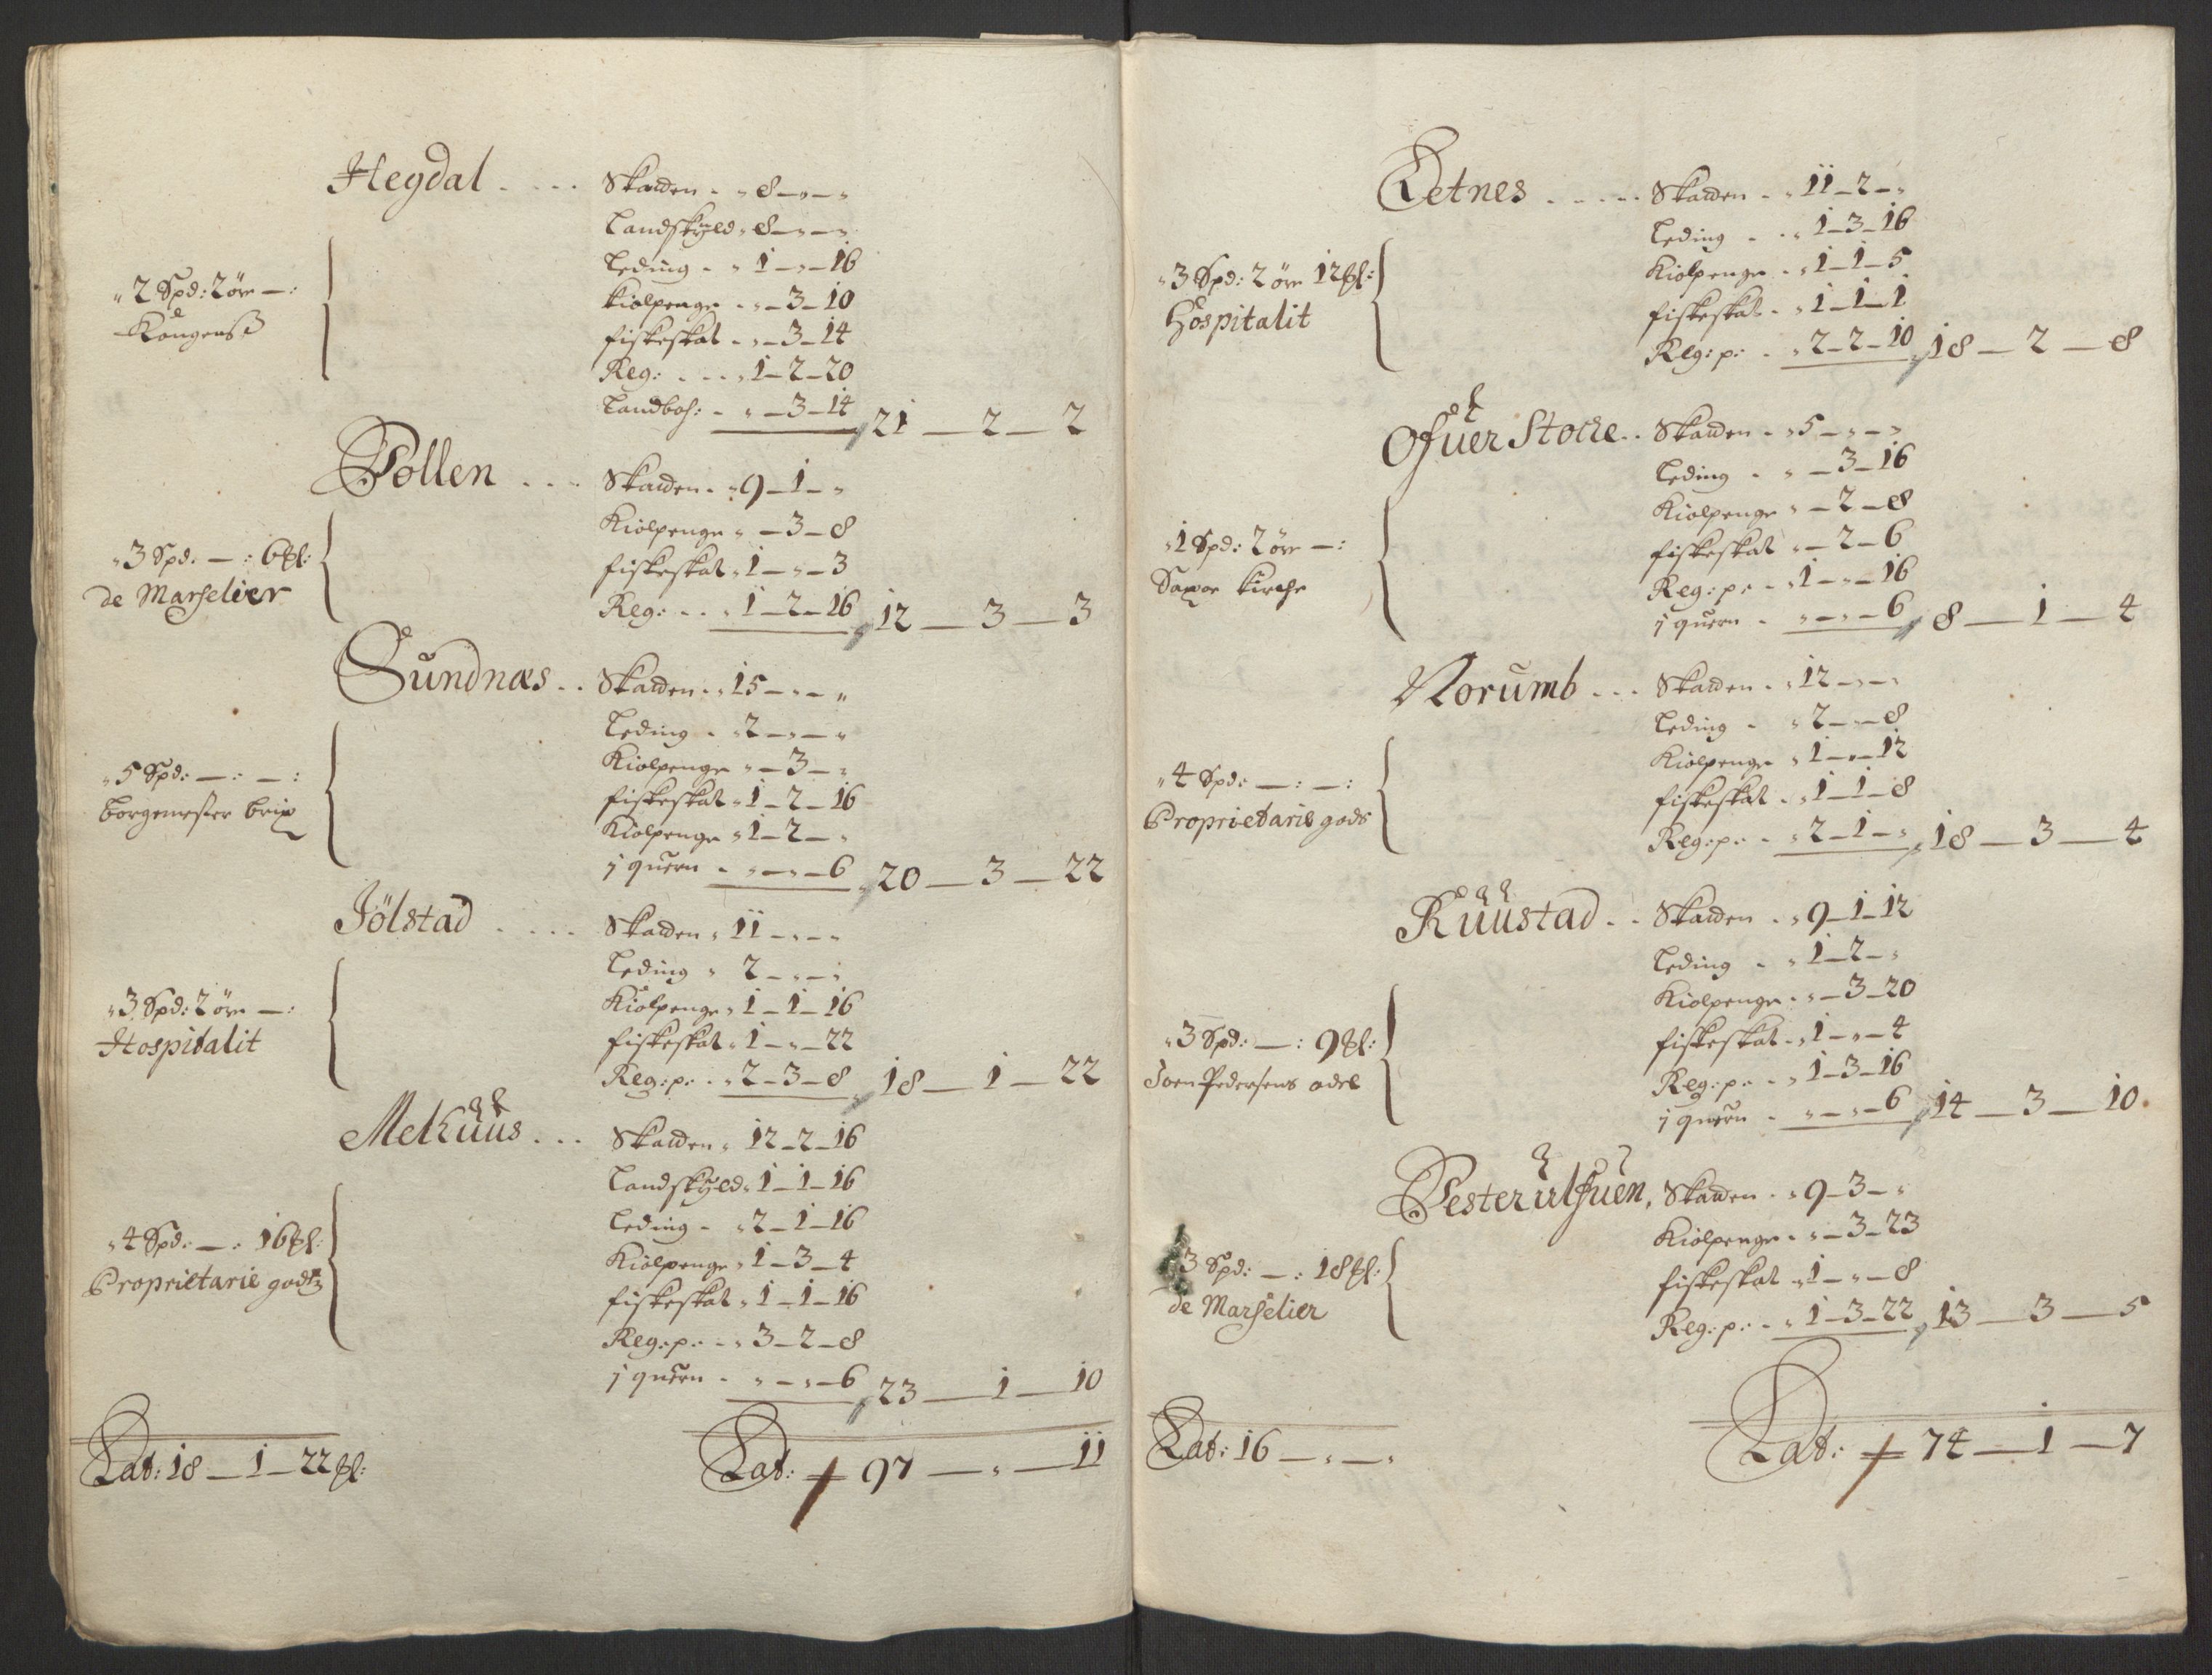 Hegdal - - - - Skatten - " 8 - " - "
Landskyld " 8 - " - "
" 2 Spd: 2 øre - :
Leding - " 1 - " - 16
Kongens
Kiølpenge - " - 3 - 10
fiskeskat - " - 3 - 14
Reg: - - - " 1 - 2 - 20
Landboh: - " - 3 - 14 21 - 2 - 2
Pollen - - - Skatten - " 9 - 1 - "
Kiølpenge " - 3 - 8
" 3 Spd: - : 6 ℔:
fiskeskat " 1 - " - 3
de Marselier
Reg: - - " 1 - 2 - 16 12 - 3 - 3
Sundnæs - - Skatten - " 15 - " - "
Leding - " 2 - " - "
Kiølpenge " - 3 - "
" 5 Spd: - : - :
fiskeskat " 1 - 2 - 16
borgemester brix
Kiølpenge " 1 - 2 - "
j quern - " - " - 6 20 - 3 - 22
Jölstad - - - - Skatten " 11 - " - "
Leding " 2 - " - "
" 3 Spd: 2 øre - :
Kiølpenge " 1 - 1 - 16
Hospitalit
fiskeskat " 1 - " - 22
Reg: p: - " 2 - 3 - 8 18 - 1 - 22
Mekuus - - - Skatten " 12 - 2 - 16
Landskyld " 1 - 1 - 16
Leding - " 2 - 1 - 16
" 4 Spd: - : 16 ℔:
Kiølpenge " 1 - 3 - 4
Proprietarie godtz
fiskeskat " 1 - 1 - 16
Reg: p: - " 3 - 2 - 8
j quern - " - " - 6 23 - 1 - 10
Lat: 18 - 1 - 22 ℔: Lat: 97 - " - 11
Letnes - - - - - Skatten - " 11 - 2 - "
Leding - - " 1 - 3 - 16
" 3 Spd: 2 øre 12 ℔:
Kiølpenge - " 1 - 1 - 5
Hospitalit
fiskeskat - " 1 - 1 - 1
Reg: p: - " 2 - 2 - 10 18 - 2 - 8
Ofuer Stocke - - Skatten - " 5 - " - "
Leding - " - 3 - 16
Kiølpenge " - 2 - 8
" 1 Spd: 2 øre - :
fiskeskat " - 2 - 6
Saxøe Kirche
Reg: p: - " 1 - " - 16
j quern - " - " - 6 8 - 1 - 4
Norumb - - - Skatten - " 12 - " - "
Leding - " 2 - " - 8
Kiølpenge " 1 - " - 12
" 4 Spd: - : - :
fiskeskat - " 1 - 1 - 8
Proprietarie gods
Reg: p: - " 2 - 1 - " 18 - 3 - 4
Ruustad - - Skatten - " 9 - 1 - 12
Leding - " 1 - 2 - "
Kiølpenge - " - 3 - 20
" 3 Spd: - : 9 ℔:
fiskeskat - " 1 - " - 4
Soen Pedersens odel
Reg: p: - " 1 - 3 - 16
j quern - " - " - 6 14 - 3 - 10
Vester ulfuen, Skatten - " 9 - 3 - "
Kiølpenge - " - 3 - 23
3 Spd: - : 18 ℔:
fiskeskat " 1 - " - 8
de Marselier
Reg: p: - " 1 - 3 - 22 13 - 3 - 5
Lat: 16 - " - " Lat: 74 - 1 - 7